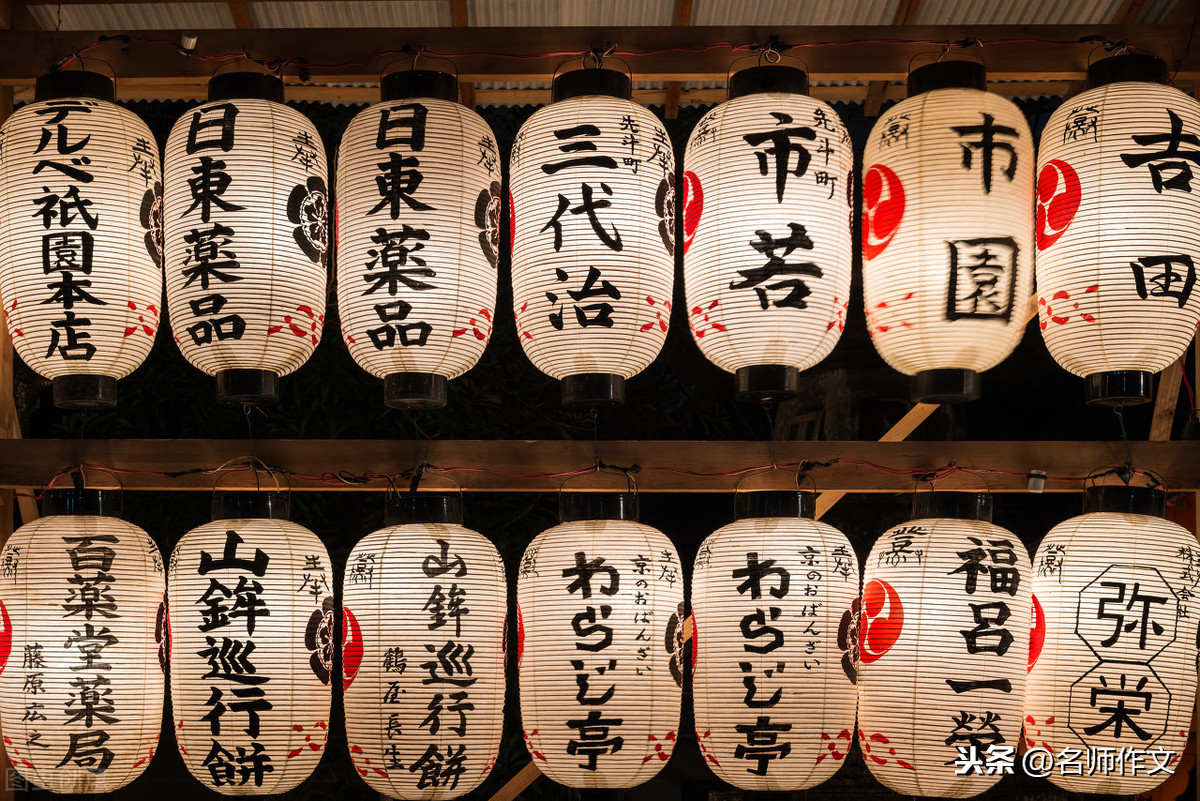 デルベ祇園本店
奉献
日東薬品
奉献
日東薬品
奉献
三代治
先斗町
奉献
市若
先斗町
市園
吉田
百薬堂薬局
藤原広之
山鉾巡行餅
奉献
山鉾巡行餅
鶴屋長生
わらじ亭
京のおばんざい
奉献
わらじ亭
京のおばんざい
奉献
福呂一榮
株式会社
弥栄
头条 @名师作文